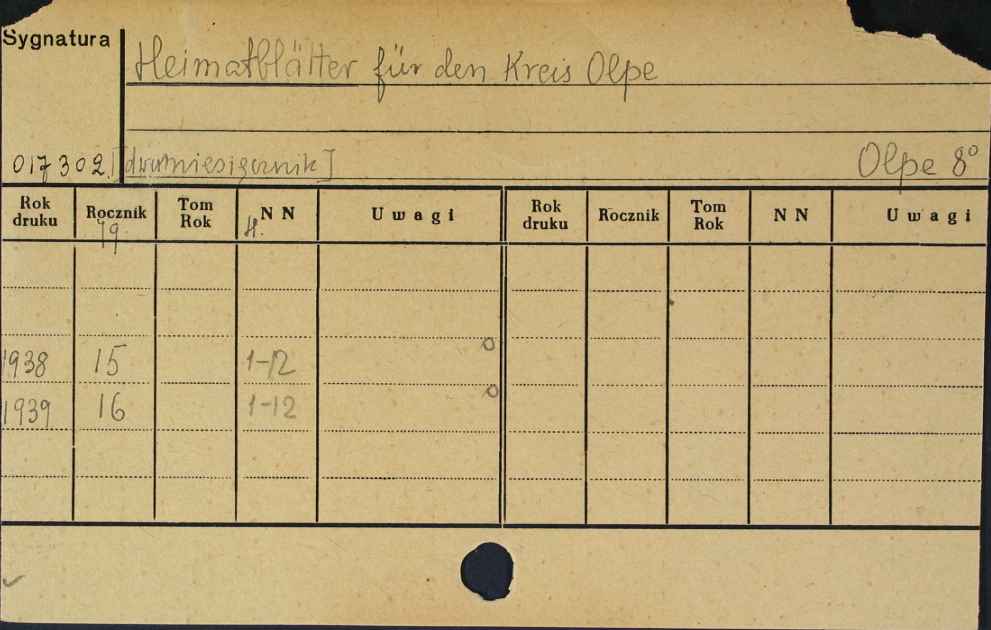 Sygnatura
Heimatblätter für den Kreis Olpe
017302 [dwumiesięcznik] Olpe 8°
Rok druku Rocznik Tom Rok NN Uwagi Rok druku Rocznik Tom Rok NN Uwagi
Jg. H.
1938 15 1-12
1939 16 1-12